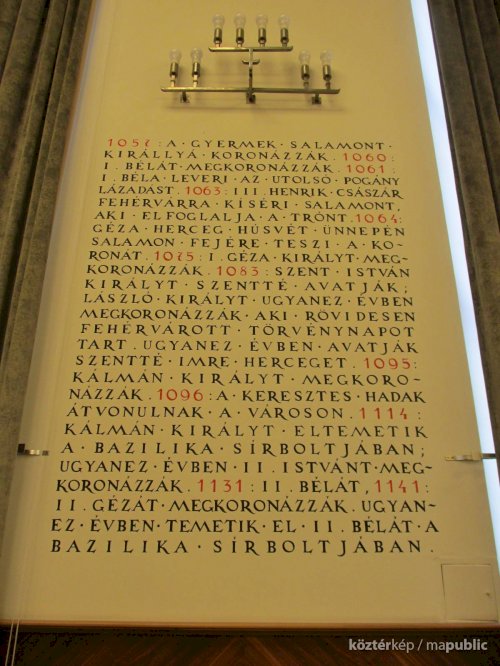 1057:A·GYERMEK·SALAMONT·
KIRÁLLYÁ·KORONÁZZÁK.1060:
I.BÉLÁT·MEGKORONÁZZÁK.1061:
I.BÉLA·LEVERI·AZ·UTOLSÓ·POGÁNY
LÁZADÁST.1063:III.HENRIK·CSÁSZÁR
FEHÉRVÁRRA·KÍSÉRI·SALAMONT,
AKI·ELFOGLALJA·A·TRÓNT.1064:
GÉZA·HERCEG·HÚSVÉT·ÜNNEPÉN
SALAMON·FEJÉRE·TESZI·A·KO-
RONÁT.1075:I.GÉZA·KIRÁLYT·MEG-
KORONÁZZÁK.1083:SZENT·ISTVÁN
KIRÁLYT·SZENTTÉ·AVATJÁK;
LÁSZLÓ·KIRÁLYT·UGYANEZ·ÉVBEN
MEGKORONÁZZÁK·AKI·RÖVIDESEN
FEHÉRVÁROTT·TÖRVÉNYNAPOT
TART.UGYANEZ·ÉVBEN·AVATJÁK
SZENTTÉ·IMRE·HERCEGET.1095:
KÁLMÁN·KIRÁLYT·MEGKORO-
NÁZZÁK.1096:A·KERESZTES·HADAK
ÁTVONULNAK·A·VÁROSON.1114:
KÁLMÁN·KIRÁLYT·ELTEMETIK
A·BAZILIKA·SÍRBOLTJÁBAN;
UGYANEZ·ÉVBEN·II.ISTVÁNT·MEG-
KORONÁZZÁK.1131:II.BÉLÁT,1141:
II.GÉZÁT·MEGKORONÁZZÁK.UGYAN-
EZ·ÉVBEN·TEMETIK·EL·II.BÉLÁT·A
BAZILIKA·SÍRBOLTJÁBAN.
köztérkép / mapublic